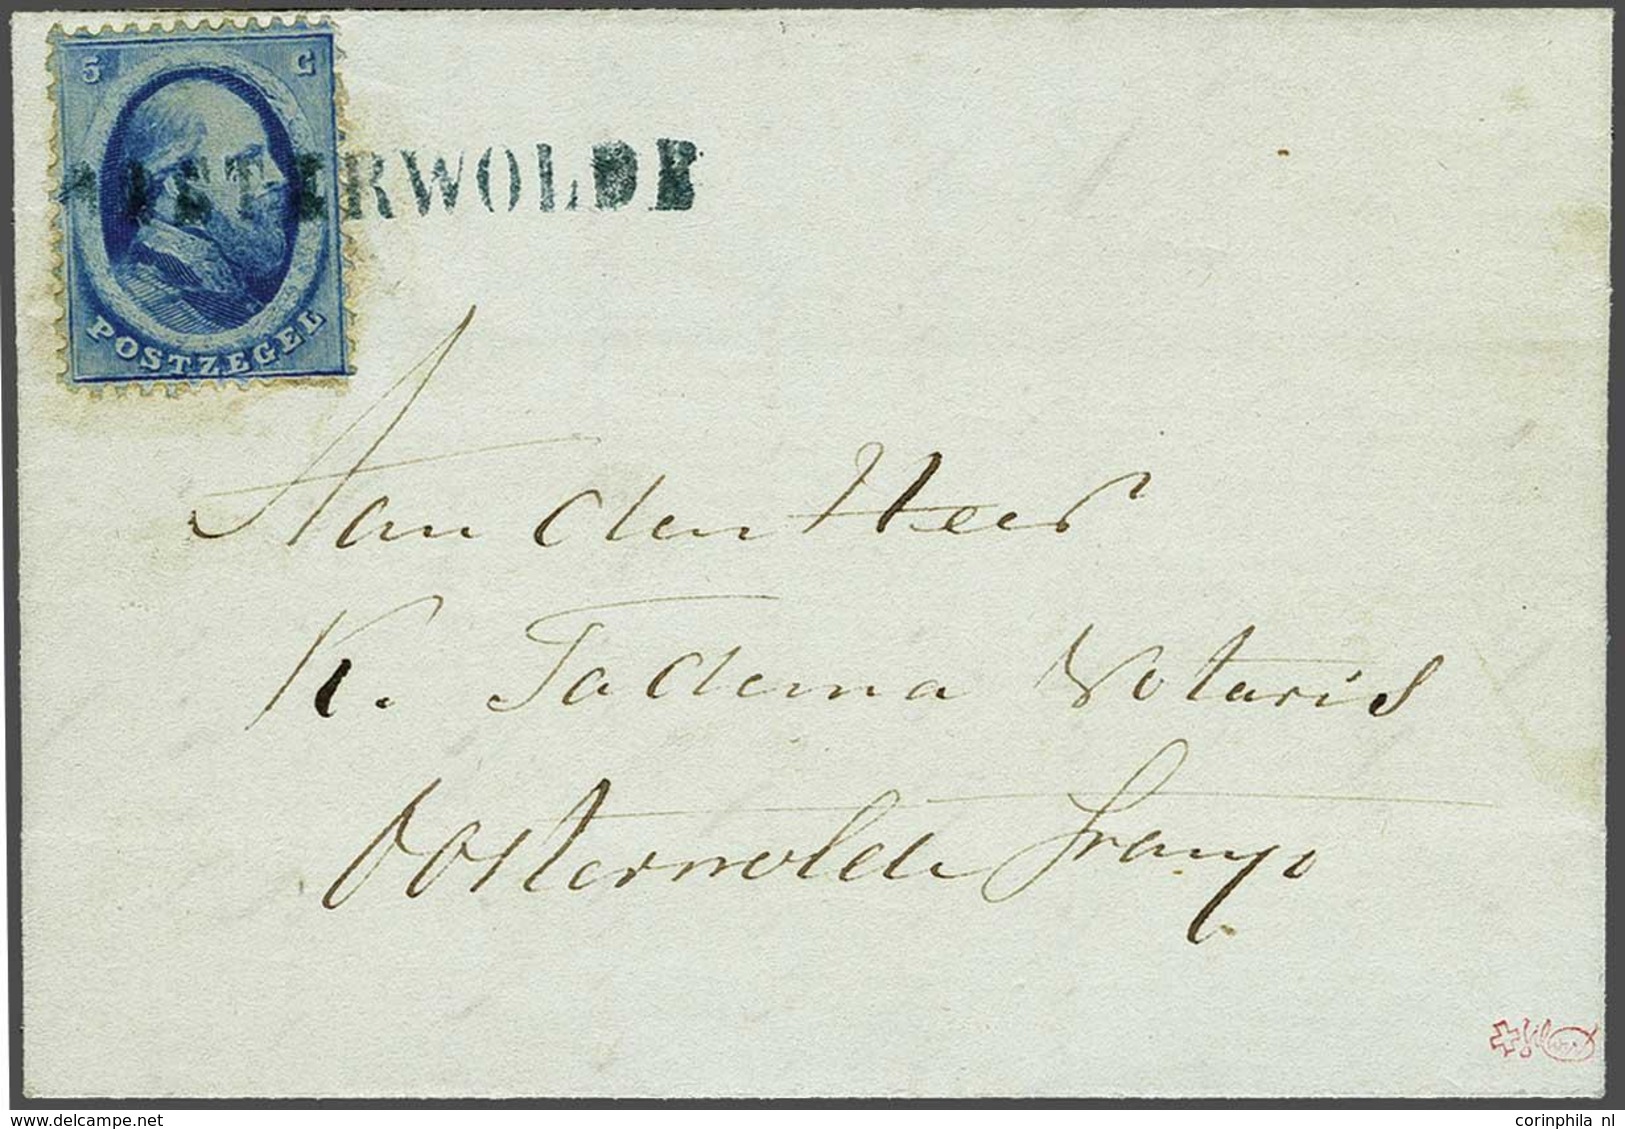 5 C
POSTZEGEL
OOSTERWOLDE
Aan den Heer
K. Tadema Notaris
Oosterwolde franco
www.delcampe.net
corinphila nl